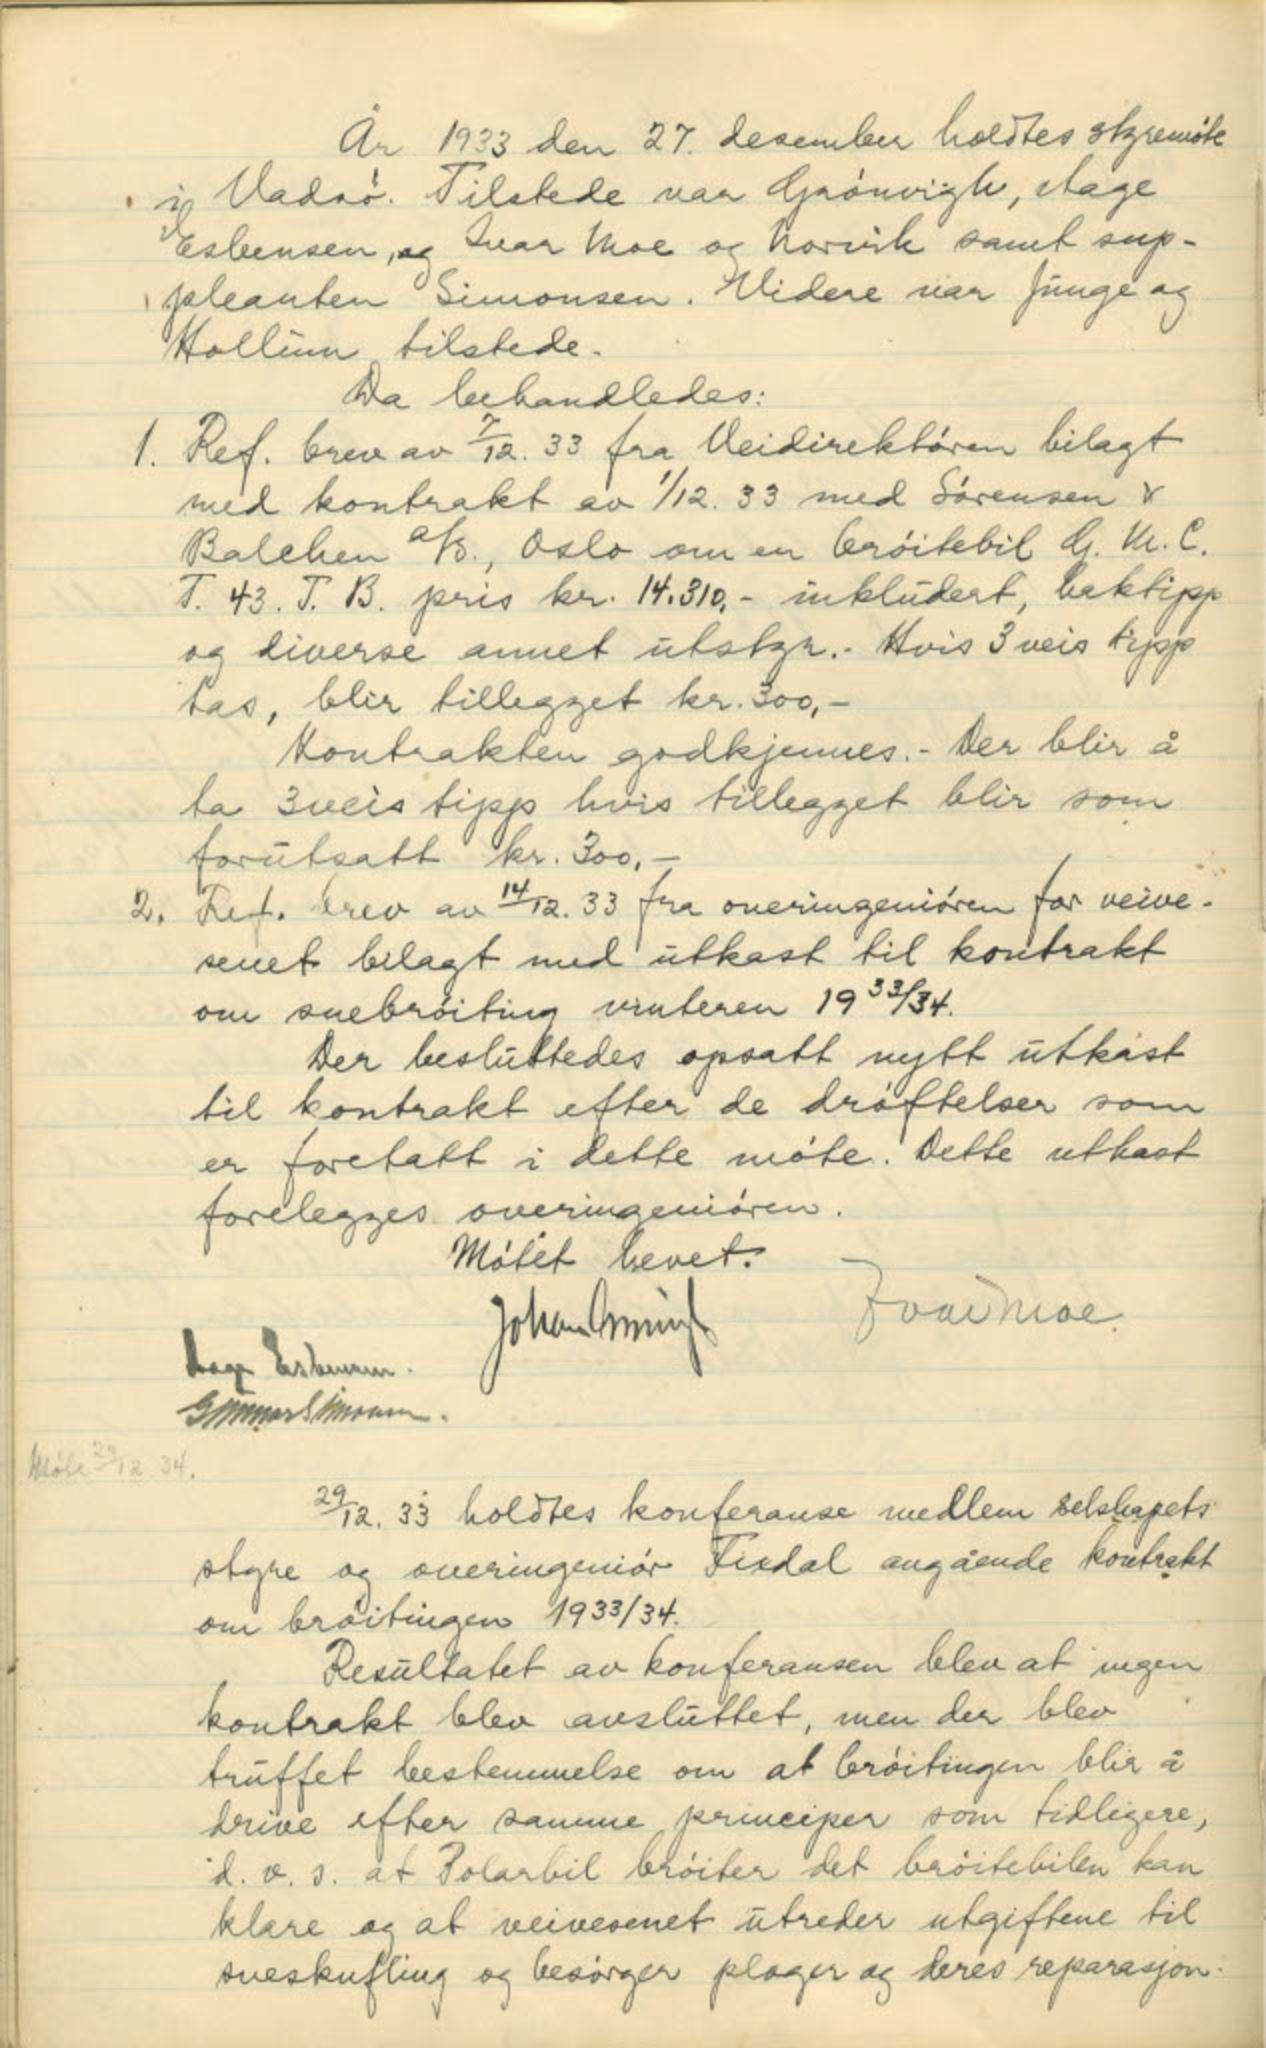 År 1933 den 27. desember holdtes styremöte
i Vadsö. Tilstede var Grönvigh, Aage
Esbensen, og Ivar Moe og Norvik samt sup-
pleanten Simonsen. Videre var Junge og
Hollum tilstede.
Da behandledes:
1. Ref. brev av 7/12. 33 fra Veidirektören bilagt
med kontrakt av 1/12. 33 med Sörensen &
Balchen a/s., Oslo om en bröitebil G. M. C.
T. 43. T. B. pris kr. 14.310,- inkludert, baktipp
og diverse annet utstyr.- Hvis 3 veis tipp
tas, blir tillegget kr. 300,-
Kontrakten godkjennes.- Der blir å
ta 3veis tipp hvis tillegget blir som
forutsatt kr. 300,-
2. Ref. brev av 14/12. 33 fra overingeniören for veive-
senet bilagt med utkast til kontrakt
om snebröiting vinteren 1933/34.
Der besluttedes opsatt nytt utkast
til kontrakt efter de dröftelser som
er foretatt i dette möte. Dette utkast
forelegges overingeniören.
Mötet hevet.
Johan Grönvigh
Ivar Moe.
Aage Esbensen.
Gunnar Simonsen.
Möte 29/12 34.
29/12. 33 holdtes konferanse medlem selskapets
styre og overingeniör Fixdal angående kontrakt
om bröitingen 1933/34.
Resultatet av konferansen blev at ingen
kontrakt blev avsluttet, men der blev
truffet bestemmelse om at bröitingen blir å
drive efter samme principer som tidligere,
d. v. s. at Polarbil bröiter det bröitebilen kan
klare og at veivesenet utreder utgiftene til
sneskufling og besörger ploger og deres reparasjon.